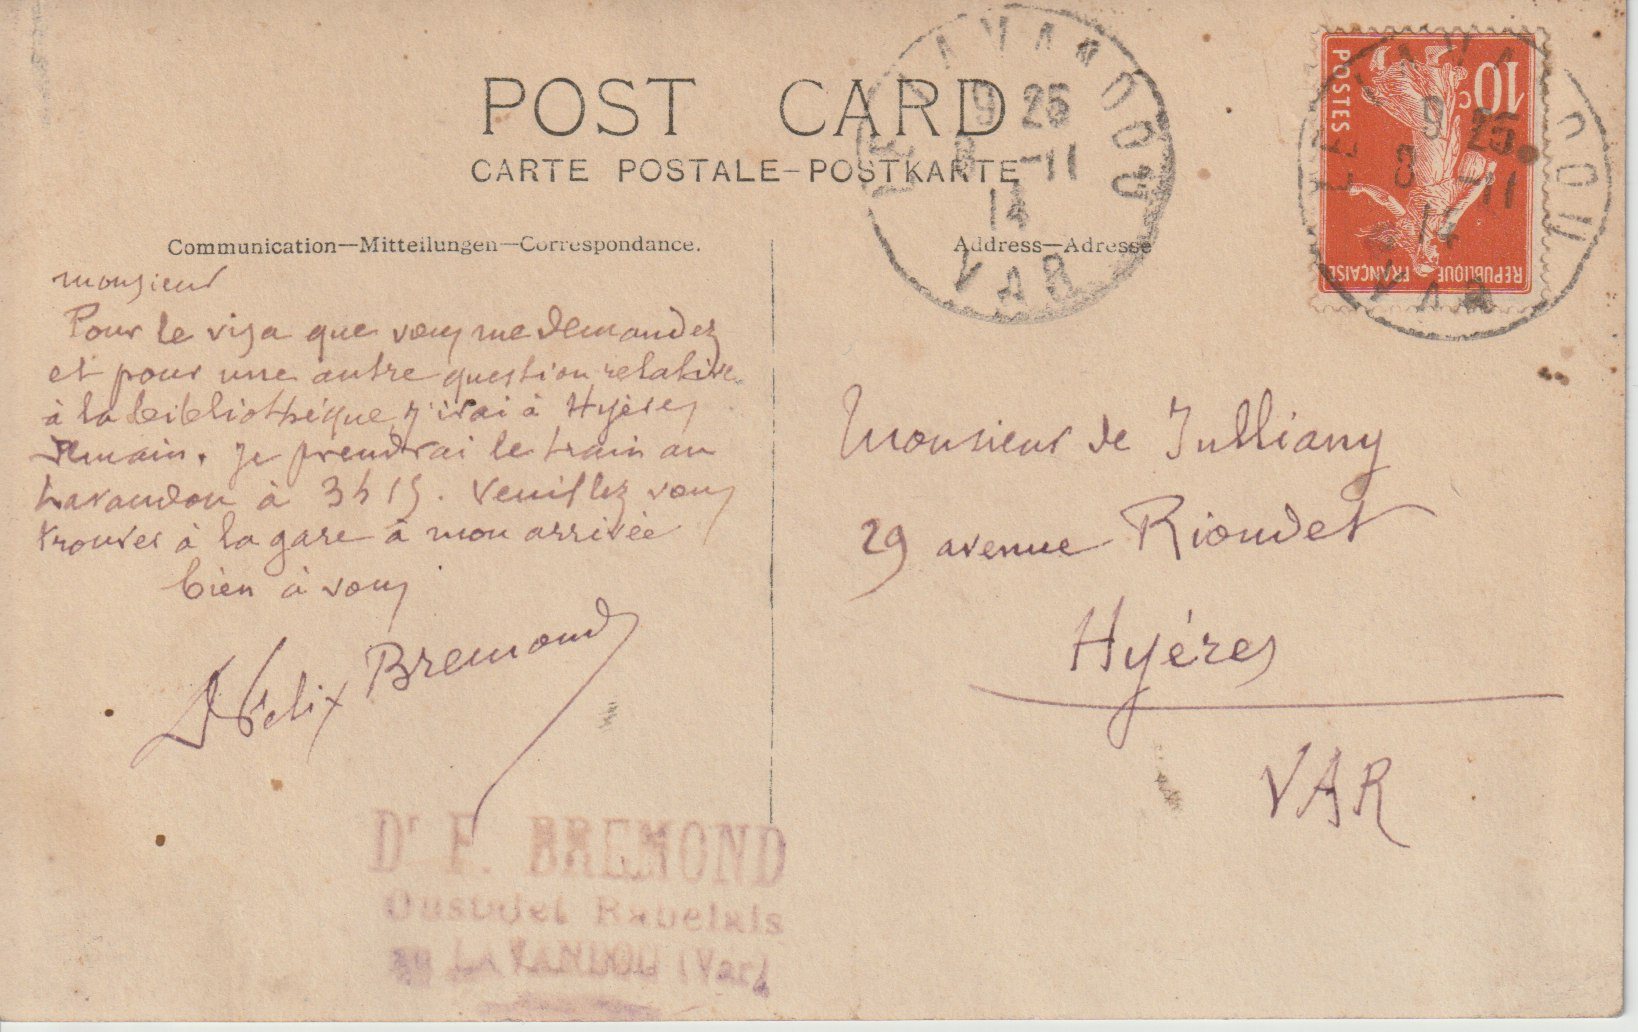 POST CARD
CARTE POSTALE-POSTKARTE
Communication—Mitteilungen—Correspondance.
Address—Adresse
LE LAVANDOU
9 25
8 -11
14
VAR
10c
POSTES
REPUBLIQUE FRANÇAISE
LE LAVANDOU
9 25
8 -11
14
VAR
Monsieur
Pour le visa que vous me demandez
et pour une autre question relative
à la bibliothèque, j'irai à Hyères
demain. Je prendrai le train au
Lavandou à 3h15. Veuillez vous
trouver à la gare à mon arrivée
bien à vous
Dr Félix Bremond
Monsieur de Julliany
29 avenue Riondet
Hyéres
VAR
Dr F. BREMOND
Oustalet Rabelais
au LAVANDOU (Var)